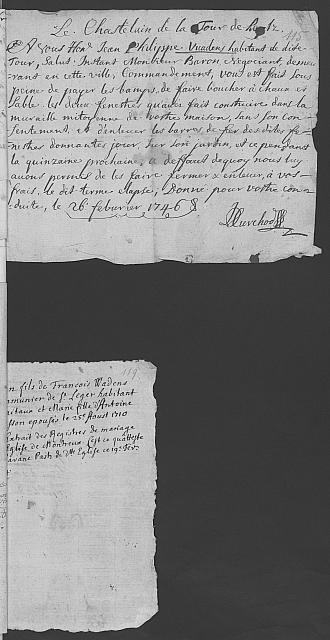 Le Chastelain de la Tour de Peilz
A Vous Hon. Jean Philippe Vuadens habitant de dite
Tour, Salut. Instant Monsieur Baron Negociant, demeu
rant en cette ville, Commandement, vous est fait sous
peine de payer les bamps, de faire boucher à chaux et
sable les deux fenestres quavés fait construire dans la
muraille mitoyenne de vostre maison, sans son con
sentement, et d'enlever les barres de fer des dites fe
nestres donnantes jour, sur son jardin, et ce pendant
la quinzaine prochaine, à deffaut dequoy nous luy
avons permis de les faire fermer & enlever, à vos
frais, le dit terme elapsé, Donné pour vostre con
duite, le 26e febvrier 1746
119
n fils de Francois Vuadens
mmunier de St Leger habitant
et Marie fille d'Antoine
sson epousés le 25e Aoust 1710
Extrait des Registres de mariage
Eglise de Montreux C'est ce qu'atteste
Past: de dte Eglise ce 19e